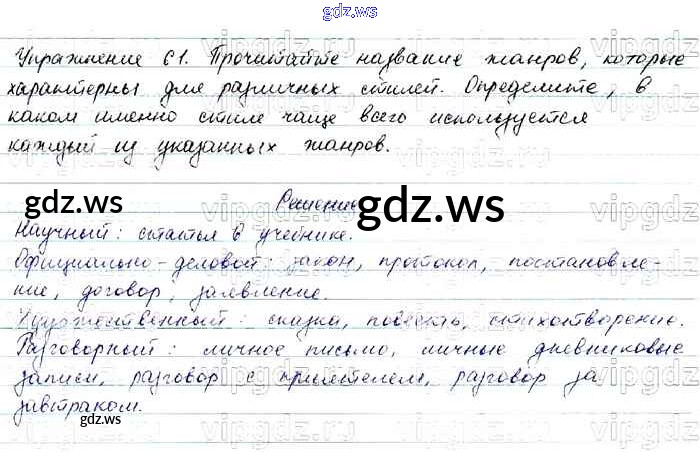 gdz.ws
Упражнение 61. Прочитайте название жанров, которые
характерны для различных стилей. Определите, в
каком именно стиле чаще всего используется
каждый из указанных жанров.
Решение
gdz.ws gdz.ws
Научный: статья в учебнике.
Официально-деловой: закон, протокол, постановле-
ние, договор, заявление.
Художественный: сказка, повесть, стихотворение.
Разговорный: личное письмо, личные дневниковые
записи, разговор с приятелем, разговор за
завтраком.
gdz.ws